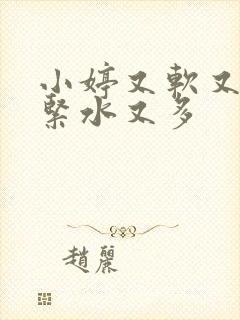 小婷又軟又
緊水又多
趙麗